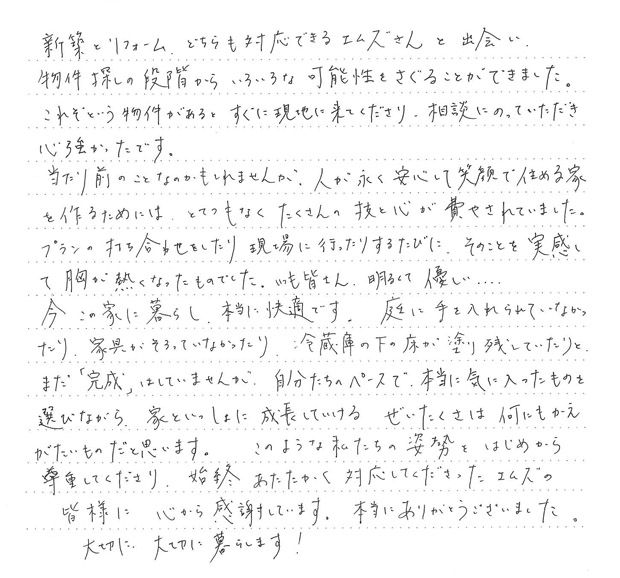 新築とリフォーム、どちらも対応できるエムズさんと出会い、
物件探しの段階からいろいろな可能性をさぐることができました。
これぞという物件があるとすぐに現地に来てくださり、相談にのっていただき
心強かったです。
当たり前のことなのかもしれませんが、人が永く安心して笑顔で住める家
を作るためには、とてつもなくたくさんの技と心が費やされていました。
プランの打ち合わせをしたり現場に行ったりするたびに、そのことを実感し
て胸が熱くなったものでした。いつも皆さん、明るくて優しい....
今この家に暮らし、本当に快適です。庭に手を入れられていなかっ
たり、家具がそろっていなかったり、冷蔵庫の下の床が塗り残していたりと、
まだ「完成」はしていませんが、自分たちのペースで、本当に気に入ったものを
選びながら、家といっしょに成長していける ぜいたくさは何にもかえ
がたいものだと思います。このような私たちの姿勢をはじめから
尊重してくださり、始終あたたかく対応してくださったエムズの
皆様に 心から感謝しています。本当にありがとうございました。
大切に、大切に暮らします！